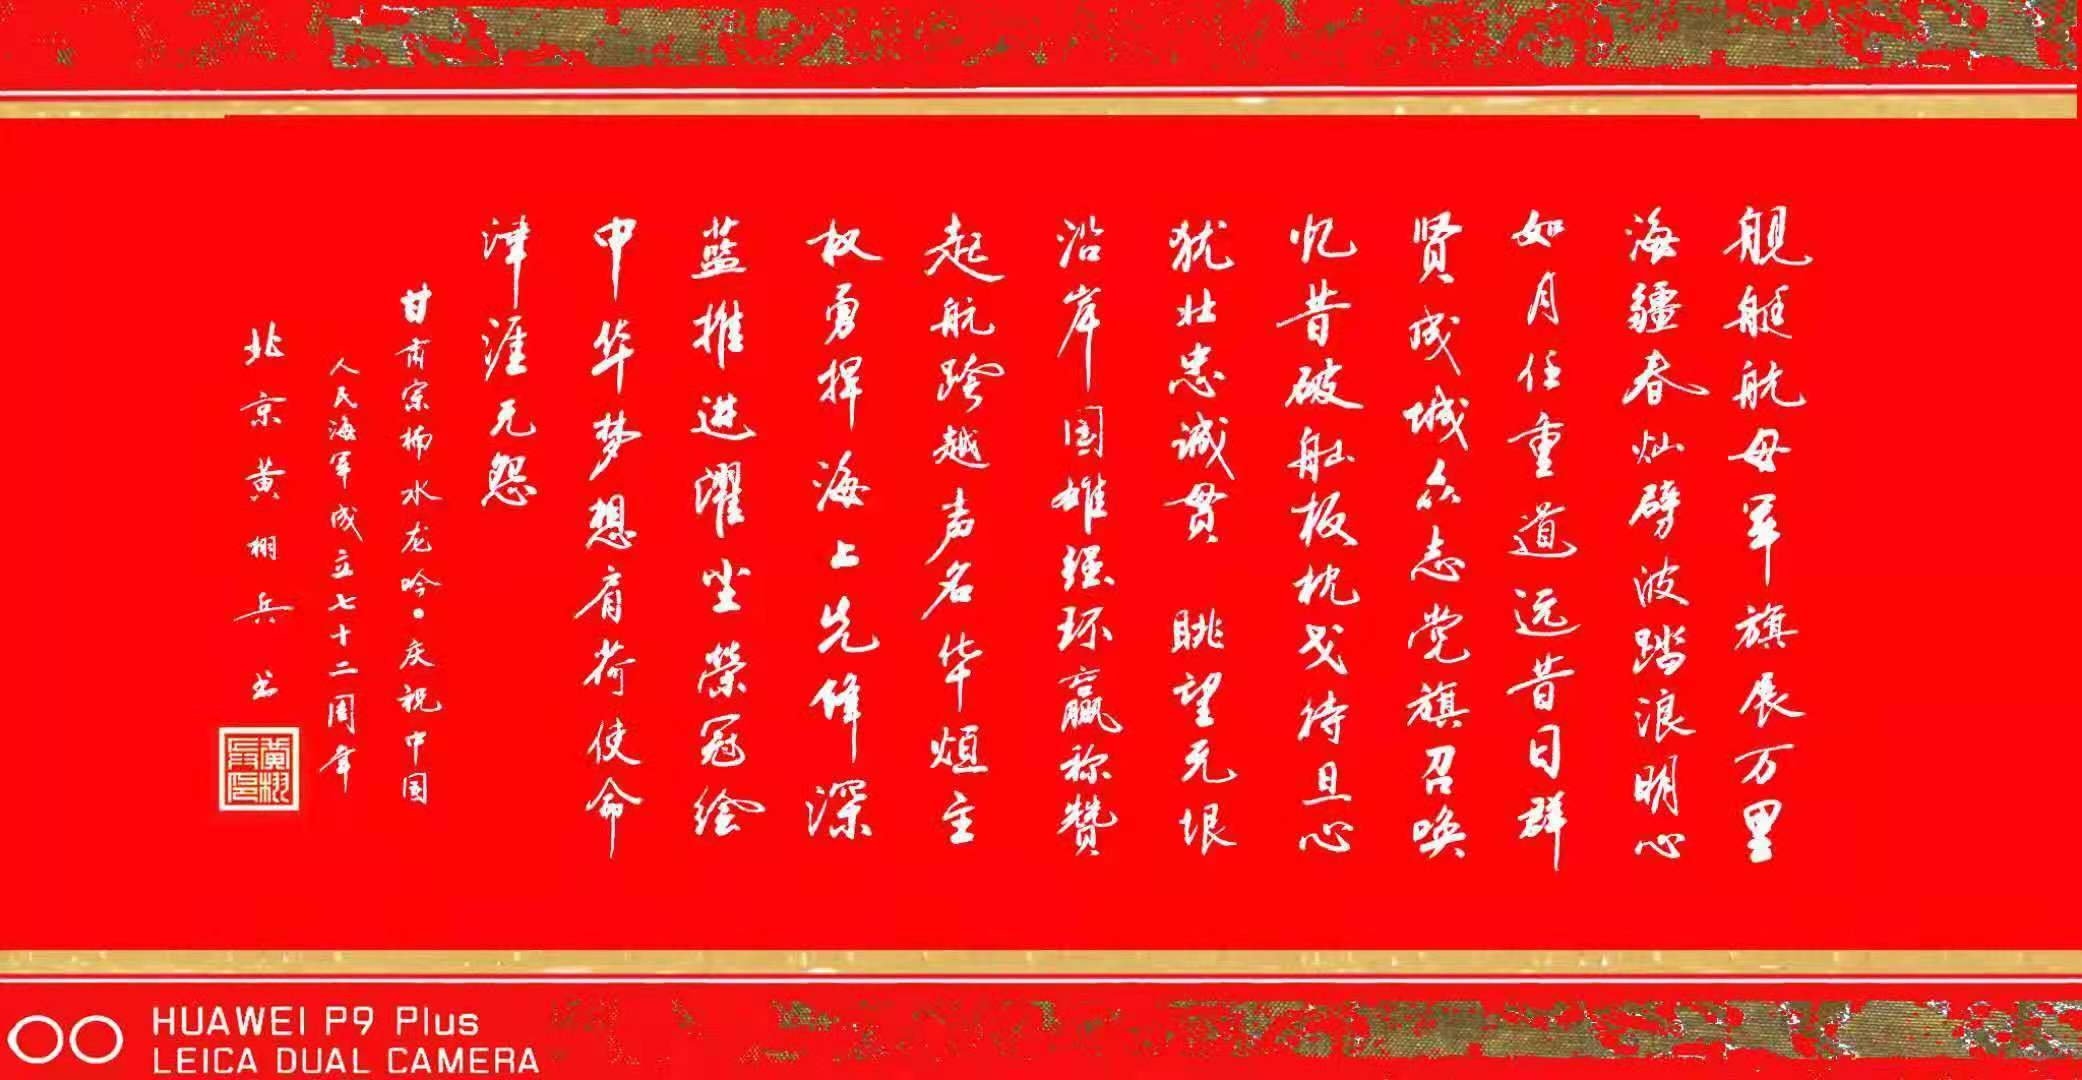 舰艇航母军旗展万里
海疆春灿劈波踏浪明心
如月任重道远昔日群
贤成城众志党旗召唤
忆昔破舢板枕戈待旦心
犹壮忠诚贯 眺望无垠
沿岸国雄强环赢称赞
起航跨越声名华烜主
权勇捍海上先锋深
蓝推进濯坐荣冠绘
中华梦想肩荷使命
津涯无怨
甘肃宗楠水龙吟·庆祝中国
人民海军成立七十二周年
北京黄栩兵书
HUAWEI P9 Plus
LEICA DUAL CAMERA